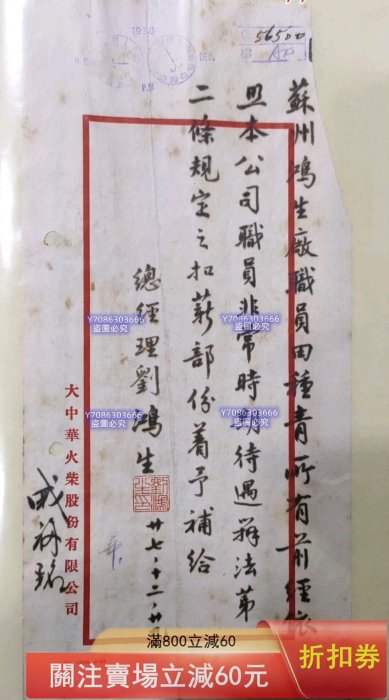 56500
蘇州鴻生廠職員田種青所有前經依
照本公司職員非常時期待遇辦法第
二條規定之扣薪部份着予補給
總經理劉鴻生
廿七·十二·廿
大中華火柴股份有限公司
Y7086303666
盜圖必究
Y7086303666
盜圖必究
Y7086303666
盜圖必究
Y7086303666
盜圖必究
Y7086303666
盜圖必究
滿800立減60
關注賣場立減60元
折扣券